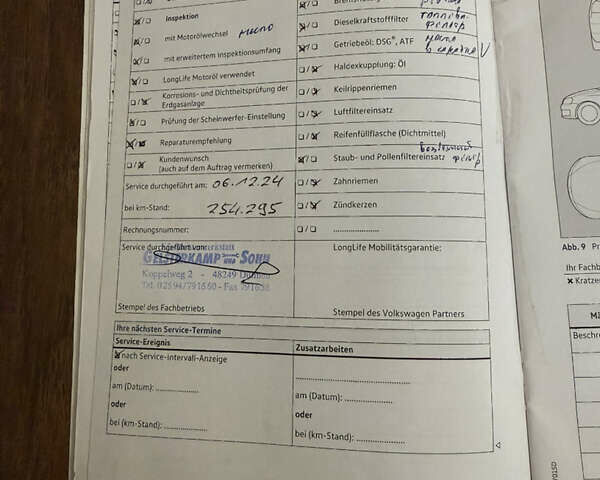 Inspektion
mit Motorölwechsel масло
mit erweitertem Inspektionsumfang
LongLife Motoröl verwendet
Korrosions- und Dichtheitsprüfung der
Erdgasanlage
Prüfung der Scheinwerfer-Einstellung
Reparaturempfehlung
Kundenwunsch
(auch auf dem Auftrag vermerken)
Service durchgeführt am: 06.12.24
bei km-Stand: 254.295
Rechnungsnummer:
Service durchgeführt von:
GELSTERKAMP UND SOHN
Koppelweg 2 - 48249 Dülmen
Tel. 02594/791660 - Fax 791658
Stempel des Fachbetriebs
Dieselkraftstofffilter топливн.
фильтр
Getriebeöl: DSG®, ATF масло
в коробке
Haldexkupplung: Öl
Keilrippenriemen
Luftfiltereinsatz
Reifenfüllflasche (Dichtmittel)
Staub- und Pollenfiltereinsatz фильтр
Zahnriemen
Zündkerzen
....................
LongLife Mobilitätsgarantie:
Stempel des Volkswagen Partners
Ihre nächsten Service-Termine
Service-Ereignis
Zusatzarbeiten
nach Service-Intervall-Anzeige
oder
am (Datum): ....................
oder
bei (km-Stand): ....................
am (Datum): ....................
oder
bei (km-Stand): ....................
Abb. 9
Ihr Fachb
Kratze
Beschre